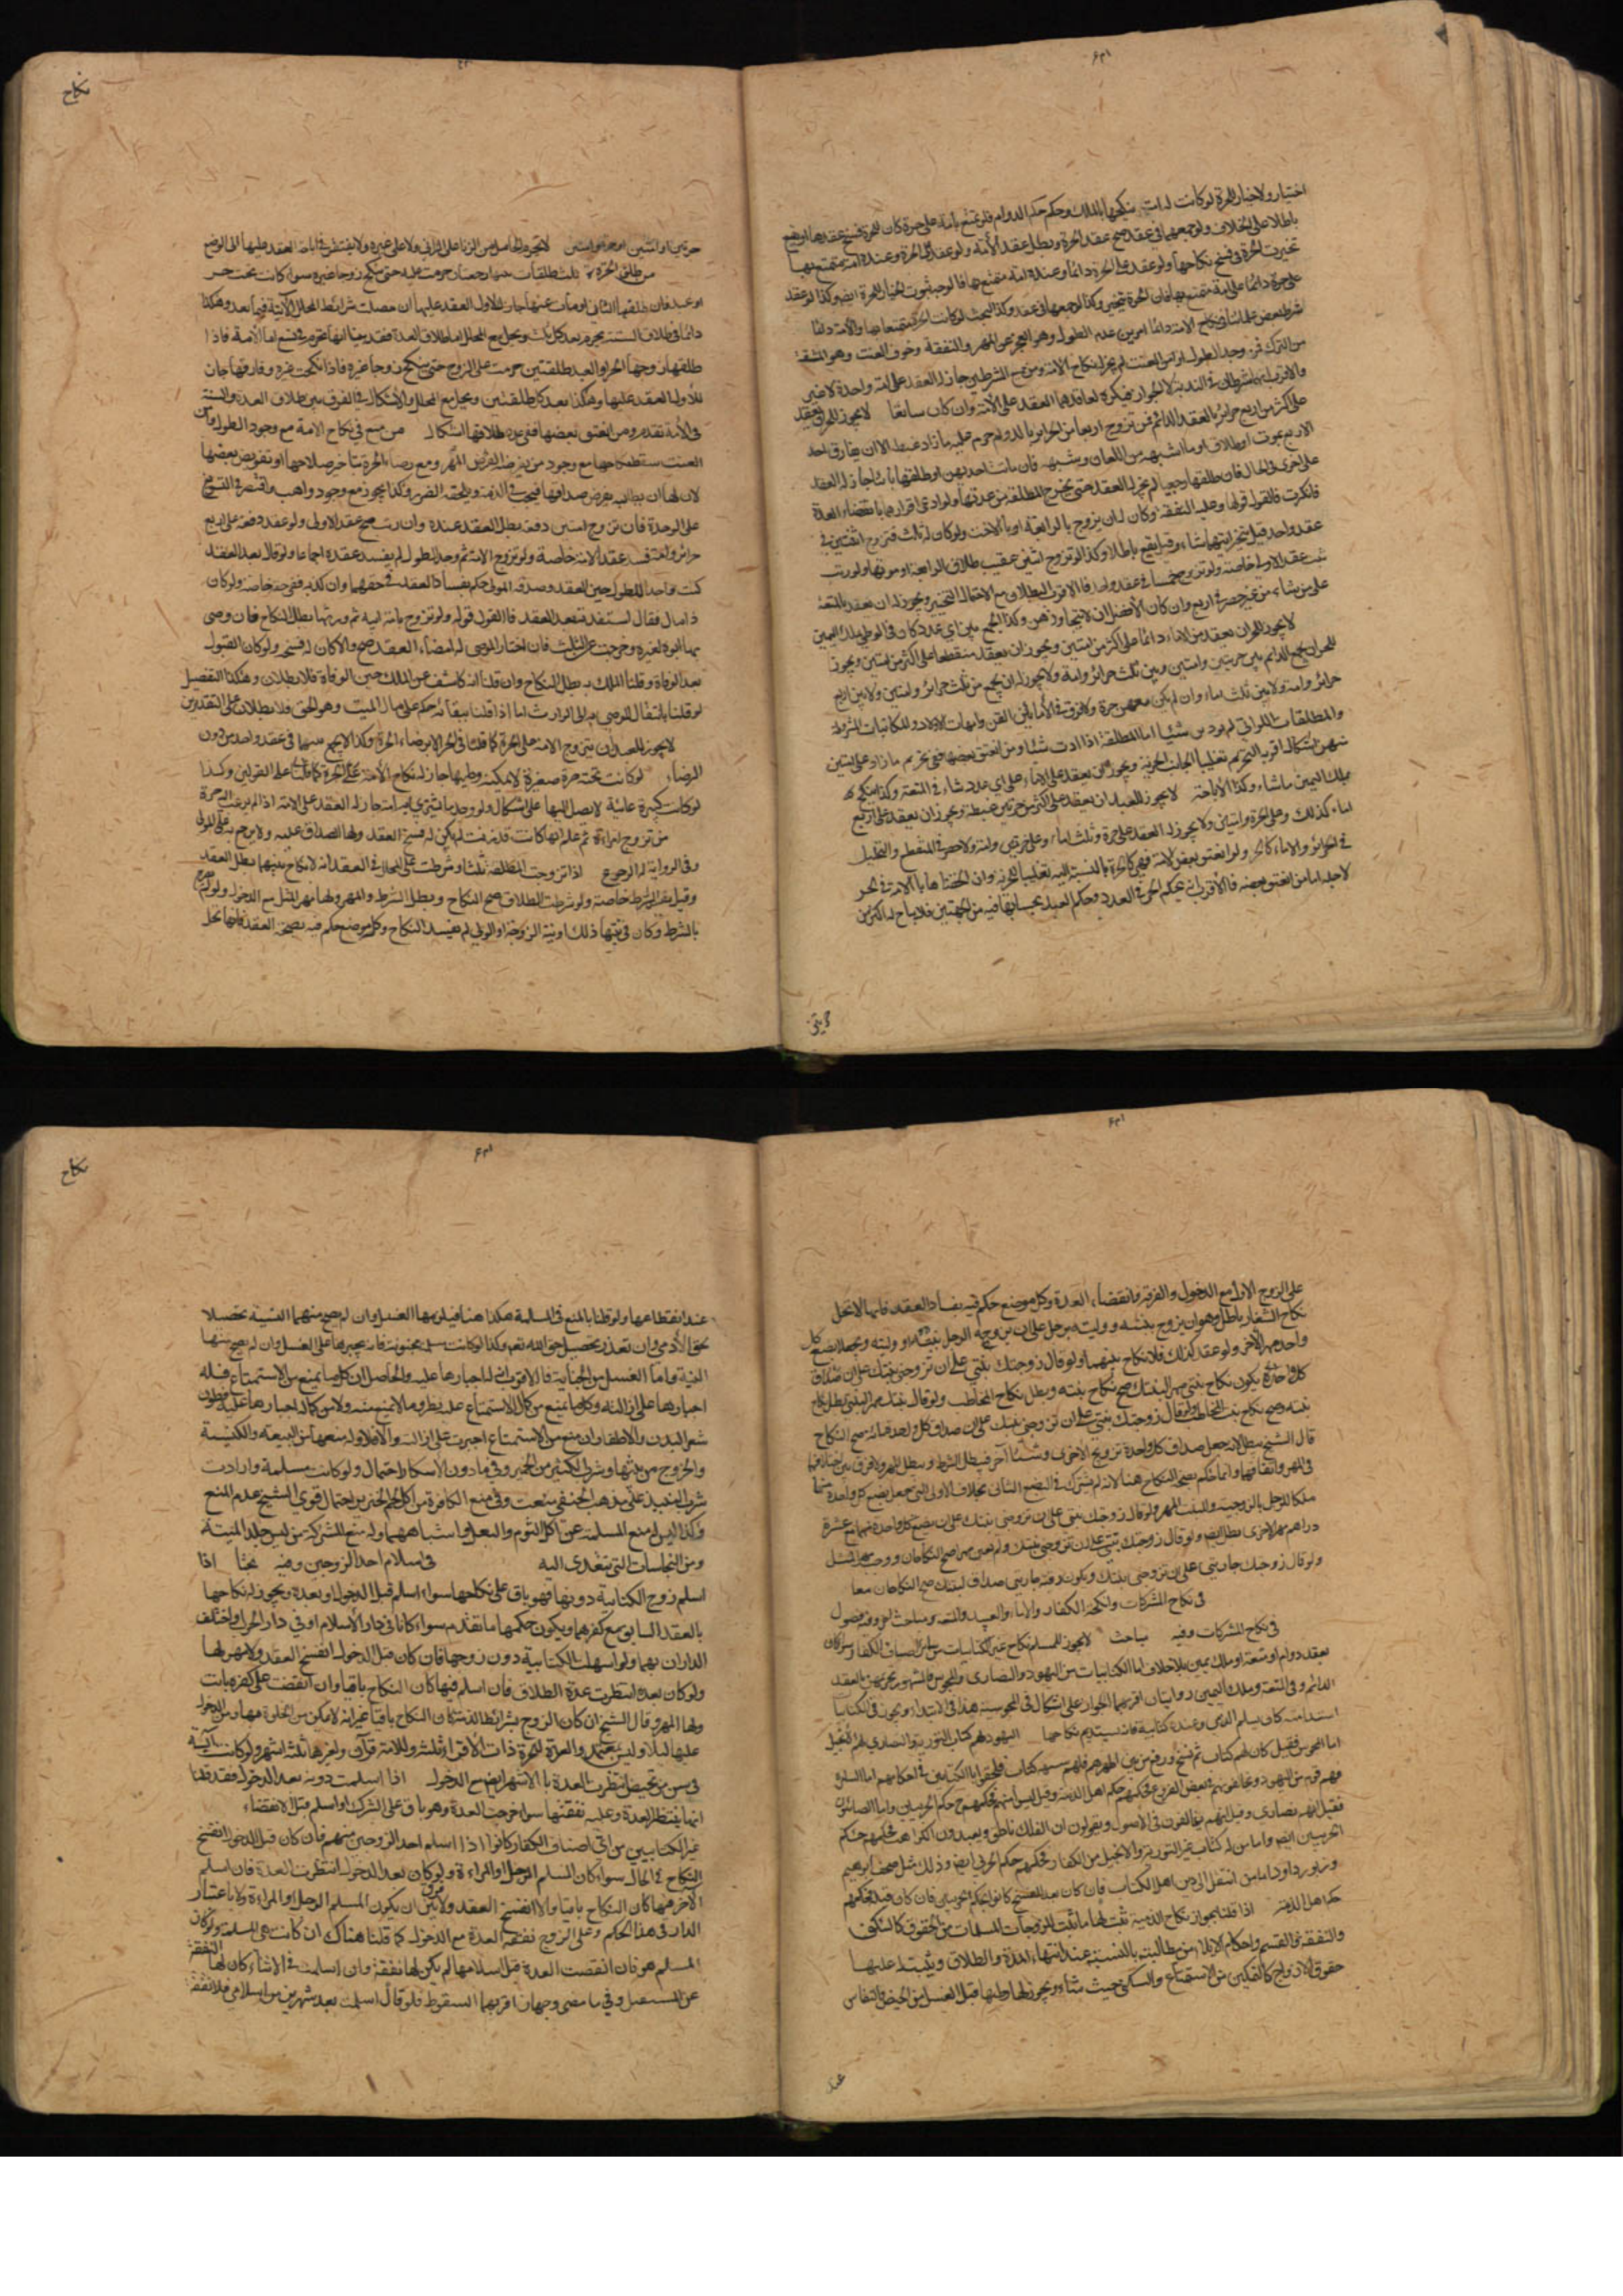 اختيار ولا خيار للحرة لو كانت له امة ينكحها بالملك وحكم الدوام فلو تمتع بامة على حرة كان للحرة فسخ عقدها او يقع
باطلا على الخلاف ولو جمعهما في عقد صح عقد الحرة وبطل عقد الأمة ولو عقد على الحرة وعنده امة متمتع بها
تخيرت الحرة في فسخ نكاحها ولو عقد على الحرة دائما وعنده امة متمتع بها فالوجه ثبوت الخيار للحرة ايضا وكذا لو عقد
على حرة دائما على امة متمتع بها فان الحرة تتخير وكذا لو جمعهما في عقد وكذا البحث لو كانت الحرة متمتعا بها والأمة دائما
شرط بعض علمائنا في نكاح الامة دائما امرين عدم الطول وهو العجز عن المهر والنفقة وخوف العنت وهو المشقة
من الترك فمن وجد الطول او امن العنت لم يجز له نكاح الامة ومن جمع الشرطين جاز له العقد على امة واحدة لا غير
والاقرب انهما شرطان في الندبية لا الجواز فيكره لفاقدهما العقد على الأمة وان كان سائغا لا يجوز للحر ان يعقد
على اكثر من اربع حرائر بالعقد الدائم فمن تزوج اربعا من الحرائر بالدوام حرم عليه ما زاد غبطة الا ان يفارق احد
الاربع بموت او طلاق او ما اشبهه من اللعان وشبهه فان ماتت احديهن او طلقها بائنا جاز له العقد
على اخرى في الحال فان طلقها رجعيا لم يجز له العقد حتى تخرج المطلقة من عدتها ولو ادعى اقرارها بانقضاء العدة
فانكرت فالقول قولها وعليه النفقة وكان له ان يزوج بالرابعة او بالاخت ولو كان له ثلث فتزوج اثنتين في
عقد واحد قيل يتخير ايتهما شاء وقيل يقع باطلا وكذا لو تزوج اثنتين عقيب طلاق الرابعة او موتها ولو رتب
ثبت عقد الاولى خاصة ولو تزوج خمسا في عقد واحد فالاقرب البطلان مع احتمال التخيير ويجوز له ان يعقد بالمتعة
على من شاء من غير حصر في اربع وان كان الأفضل ان لا يتجاوزهن وكذا الجمع بين اي عدد كان في الوطي بملك اليمين
لا يجوز للحر ان يعقد من الاماء دائما على اكثر من امتين ويجوز ان يعقد منقطعا على اكثر من امتين ويجوز
للحر ان يجمع الدائم بين حرتين وامتين وبين ثلث حرائر وامة ولا يجوز له ان يجمع من ثلث حرائر وامتين ولا بين اربع
حرائر وامة ولا بين ثلث اماء وان لم يكن معهن حرة ولا فرق في الأماء بين القن وامهات الاولاد والمكاتبات المشروطة
والمطلقات اللواتي لم يودين شيئا اما المطلقة اذا ادت شيئا ومن انعتق بعضها ففي تحريم ما زاد على اثنتين
منهن اشكال اقربه التحريم تغليبا لجانب الحرية ويجوز ان يعقد على الاماء على اي عدد شاء في المتعة وكذا ينكح
بملك اليمين ما شاء وكذا الأباحة لا يجوز للعبد ان يعقد على اكثر من حرتين غبطة ويجوز ان يعقد على اربع
اماء كذلك وعلى حرة وامتين ولا يجوز له العقد على حرة وثلث اماء وعلى حرتين وامة ولا حصر في المنقطع والتحليل
في الحرائر والاماء كالحر ولو انعتق بعض الامة فهي كالحرة بالنسبة اليه تغليبا للحرية وان الحقناها بالأمة في الحر
لاجله اما من انعتق بعضه فالأقرب انه بحكم الحر في العدد وحكم العبد بحسابها فيه من الجهتين فلا يباح له اكثر من
حرتين
نكاح
حرتين او امتين او حرة وامتين لا يحرم الحامل من الزنا على الزاني ولا على غيره ولا ينتظر في اباحة العقد عليها الى الوضع
من طلق الحرة ثلث طلقات بينها رجعتان حرمت عليه حتى تنكح زوجا غيره سواء كانت تحت حر
او عبد فان طلقها الثاني او مات عنها جاز للاول العقد عليها ان حصلت شرائط المحلل الآتية فيما بعد وهكذا
دائما في طلاق السنة يحرم بعد كل ثلث ويحل مع المحلل اما طلاق العدة فقد بينا انها تحرم في تسع اما الأمة فاذا
طلقها زوجها الحر او العبد طلقتين حرمت على الزوج حتى تنكح زوجا غيره فاذا نكحت غيره وفارقها جاز
للأول العقد عليها وهكذا بعد كل طلقتين ويحل مع المحلل والأشكال في الفرق بين طلاق العدة والسنة
في الأمة تقدم ومن انعتق بعضها ففي عدد طلاقها اشكال من منع في نكاح الامة مع وجود الطول وامن
العنت سقط نكاحها مع وجود من يقرضه القرض المهر ومع رضاء الحرة بتاخر صلاحها او تفويض بعضها
لان لها ان يطالبه بفرض صداقها فيجب في الذمة ويلحقه الضرر وكذا يجوز مع وجود واهب واقتصر في التسويغ
على الوحدة فان تزوج امتين دفعة بطل العقد عنده وان رتب صح عقد الاولى ولو عقد دفعة على اربع
حرائر وامة فسد عقد الامة خاصة ولو تزوج الامة ثم وجد الطول لم يفسد عقده اجماعا ولو قال بعد العقد
كنت واجدا للطول حين العقد وصدقه المولى حكم بفساد العقد في حقهما وان كذبه ففي حقه خاصة ولو كان
ذا مال فقال استفدته بعد العقد فالقول قوله ولو تزوج بامة ابيه ثم ورثها بطل النكاح فان وصى
بها ابوه لغيره وخرجت من الثلث فان اختار الموصى له امضاء العقد صح والا كان له فسخه ولو كان القبول
بعد الوفاة وقلنا الملك به بطل النكاح وان قلنا انه كاشف عن الملك حين الوفاة فلا بطلان وهكذا التفصيل
لو قلنا بانتقال الموصى به الى الوارث اما اذا قلنا ببقائه على حكم مال الميت وهو الحق فلا بطلان على التقديرين
لا يجوز للعبد ان يتزوج الامة على الحرة كما قلنا في الحر الا برضاء الحرة وكذا لا يجمع بينهما في عقد واحد من دون
الرضاء لو كانت تحته حرة صغيرة لا يمكنه وطيها جاز له نكاح الأمة على الحرة كما قلناه على القولين وكذا
لو كانت كبيرة غائبة لا يصل اليها على اشكال ولو وجد ما يشتري به امة جاز له العقد على الامة اذا لم يرغب الحرة
من تزوج امراة ثم علم انها كانت قد زنت لم يكن له فسخ العقد ولها الصداق عليه ولا يرجع به على المولى
وفي الرواية له الرجوع اذا تزوجت المطلقة ثلثا وشرطت على المحلل في العقد انه لا نكاح بينهما بطل العقد
وقيل يبطل الشرط خاصة ولو شرطت الطلاق صح النكاح وبطل الشرط والمهر ولها مهر المثل مع الدخول ولو لم يصرح
بالشرط وكان في نيتها ذلك او نية الزوجة او الولي لم يفسد النكاح وكل موضع حكم فيه بصحة العقد فانها تحل
على الزوج الاول مع الدخول والفرقة وانقضاء العدة وكل موضع حكم فيه بفساد العقد فانها لا تحل
نكاح الشغار باطل وهو ان يزوج بنته ووليته برجل على ان يزوجه الرجل بنته او وليته ويجعلا بضع كل
واحد مهر الآخر ولو عقد كذلك فلا نكاح بينهما ولو قال زوجتك بنتي على ان تزوجني بنتك على ان صداق
كل واحدة يكون نكاح بنتي مهر البنتك صح نكاح بنته وبطل نكاح المخاطب ولو قال بنتك مهر البنتي بطل نكاح
بنته وصح نكاح بنت المخاطب ولو قال زوجتك بنتي على ان تزوجني بنتك على ان صداق كل واحد مائة صح النكاح
قال الشيخ يبطل لانه جعل صداق كل واحدة تزويج الاخرى وشيئا آخر فبطل الشرط وبطل المهر ولا فرق بين اختلافهما
في المهر واتفاقهما وانما حكم بصحة النكاح هنا لانه لم يشترك في البضع الثاني بخلاف الاولى التي جعل بضع كل واحدة منهما
ملكا للرجل بالزوجية وللبنت بالمهر ولو قال زوجتك بنتي على ان تزوجني بنتك على ان بضع كل واحدة منهما مع عشرة
دراهم مهر الاخرى بطل البضع ولو قال زوجتك بنتي على ان تزوجني بنتك ولم يعين مهرا صح النكاحان ووجب مهر المثل
ولو قال زوجتك جاريتي على ان تزوجني بنتك ويكون رقبة جاريتي صداق لبنتك صح النكاحان معا
في نكاح المشركات وانكحة الكفار والاماء والعبيد والمتعة ومباحث اخر وفيه فصول
في نكاح المشركات وفيه مباحث لا يجوز للمسلم نكاح غير الكتابيات من سائر اصناف الكفار سواء كان
بعقد دوام او متعة او ملك يمين بلا خلاف اما الكتابيات من اليهود والنصارى والمجوس فالمشهور تحريمهن بالعقد
الدائم وفي المتعة وملك اليمين روايتان اقربهما الجواز على اشكال في المجوسية هذا في الابتداء ويجوز في الكتابية
استدامته كان يسلم الذمي وعنده كتابية فانه يستديم نكاحها اليهود لهم كتاب التورية والنصارى لهم الانجيل
اما المجوس فقيل كان لهم كتاب ثم نسخ ورفع من بين اظهرهم فلهم شبهة كتاب فيلحقوا باالكتابيين في احكامهم اما السامرة
فهم قوم من اليهود ويخالفونهم في بعض الفروع فحكمهم حكم اهل الذمة وقيل ليس منهم فحكمهم حكم الحربيين واما الصابئون
فقيل انهم نصارى وقيل انهم يخالفون في الاصول ويقولون ان الفلك ناطق ويعبدون الكواكب فحكمهم حكم
الحربيين ايضا واما من له كتاب غير التورية والانجيل من الكفار فحكمهم حكم الحربي ايضا وذلك مثل صحف ابرهيم
وزبور داود اما من انتقل الى دين اهل الكتاب فان كان بعد النسخ كانوا بحكم الحربيين فان كان قبله فحكمهم
حكم اهل الذمة اذا قلنا بجواز نكاح الذمية ثبت لها ما ثبت للزوجات المسلمات من الحقوق كالسكنى
والنفقة والقسم واحكام الايلاء من مطالبته بالفسئة عند انتهاء المدة والطلاق ويثبت له عليها
حقوق الازواج كالتمكين من الاستمتاع والسكنى حيث شاء ويجوز لها وطيها قبل الغسل من الحيض والنفاس
عند
نكاح
عند انقطاعها ولو قلنا بالمنع في المسلمة هكذا هنا فيلزمها الغسل وان لم يصح منهما النية تحصيلا
لحق الآدمي وان تعذر تحصيل حق الله نعم وكذا لو كانت مسلمة مجنونة فانه يجبرها على الغسل وان لم يصح منها
النية واما الغسل من الجنابة فالاقرب انه له اجبارها عليه والحاصل ان كل ما يمنع من الاستمتاع فله
اجبارها على ازالته وكل ما يمنع من كمال الاستمتاع عليه نظر وما لا يمنع منه ولا من كماله اجبارها عليه فطول
شعر البدن والاظفار ان منع من الاستمتاع اجبرت على ازالته والا فلا وله منعها من البيعة والكنيسة
والخروج من بيتها وشرب الكثير من الخمر وفي ما دون الأسكار احتمال ولو كانت مسلمة وارادت
شرب النبيذ على مذهب الحنفي منعت وفي منع الكافرة من اكل لحم الخنزير احتمال قوي الشيخ عدم المنع
وكذا ليس له منع المسلمة عن اكل الثوم والبصل وما اشباههما وله منع المشركة من لبس جلد الميتة
ومن النجاسات التي تتعدى اليه في اسلام احد الزوجين وفيه بحثا اذا
اسلم زوج الكتابية دونها فهو باق على نكاحها سواء اسلم قبل الدخول او بعده ويجوز له نكاحها
بالعقد السابق مع كفرهما ويكون حكمها ما تقدم سواء كانا في دار الأسلام او في دار الحرب او اختلف
الداران بهما ولو اسلمت الكتابية دون زوجها فان كان قبل الدخول انفسخ العقد ولا مهر لها
ولو كان بعده انتظرت عدة الطلاق فان اسلم فيها كان النكاح باقيا وان انقضت على كفره بانت
ولها المهر وقال الشيخ ان كان الزوج بشرائط الذمة كان النكاح باقيا غير انه لا يمكن من الخلوة بها ومن الدخول
عليها ليلا وليس بمعتمد والعدة للحرة ذات الأقراء ثلثة وللامة قرآن ولغيرها ثلثة اشهر ولو كانت آيسة
في سن من تحيض انتظرت العدة باالاشهر ايضا مع الدخول اذا اسلمت دونه بعد الدخول فقد قلنا
انها ينتظر العدة وعليه نفقتها سواء خرجت العدة وهو باق على الشرك او اسلم قبل الانقضاء
غير الكتابيين من اي اصناف الكفار كانوا اذا اسلم احد الزوجين منهم فان كان قبل الدخول انفسخ
النكاح في الحال سواء كان المسلم الرجل او المراءة ولو كان بعد الدخول انتظرت العدة فان اسلم
الآخر فيها كان النكاح باقيا والا انفسخ العقد ولا فرق بين ان يكون المسلم الرجل او المراءة ولا اعتبار
الدار في هذا الحكم وعلى الزوج نفقة العدة مع الدخول كما قلنا هناك ان كانت هي المسلمة ولو كان
المسلم هو فان انقضت العدة قبل اسلامها لم يكن لها نفقة وان اسلمت في الاثناء كان لها النفقة
عن المستقبل وفي ما مضى وجهان اقربهما السقوط فلو قال اسلمت بعد شهرين من اسلامي فلا نفقة